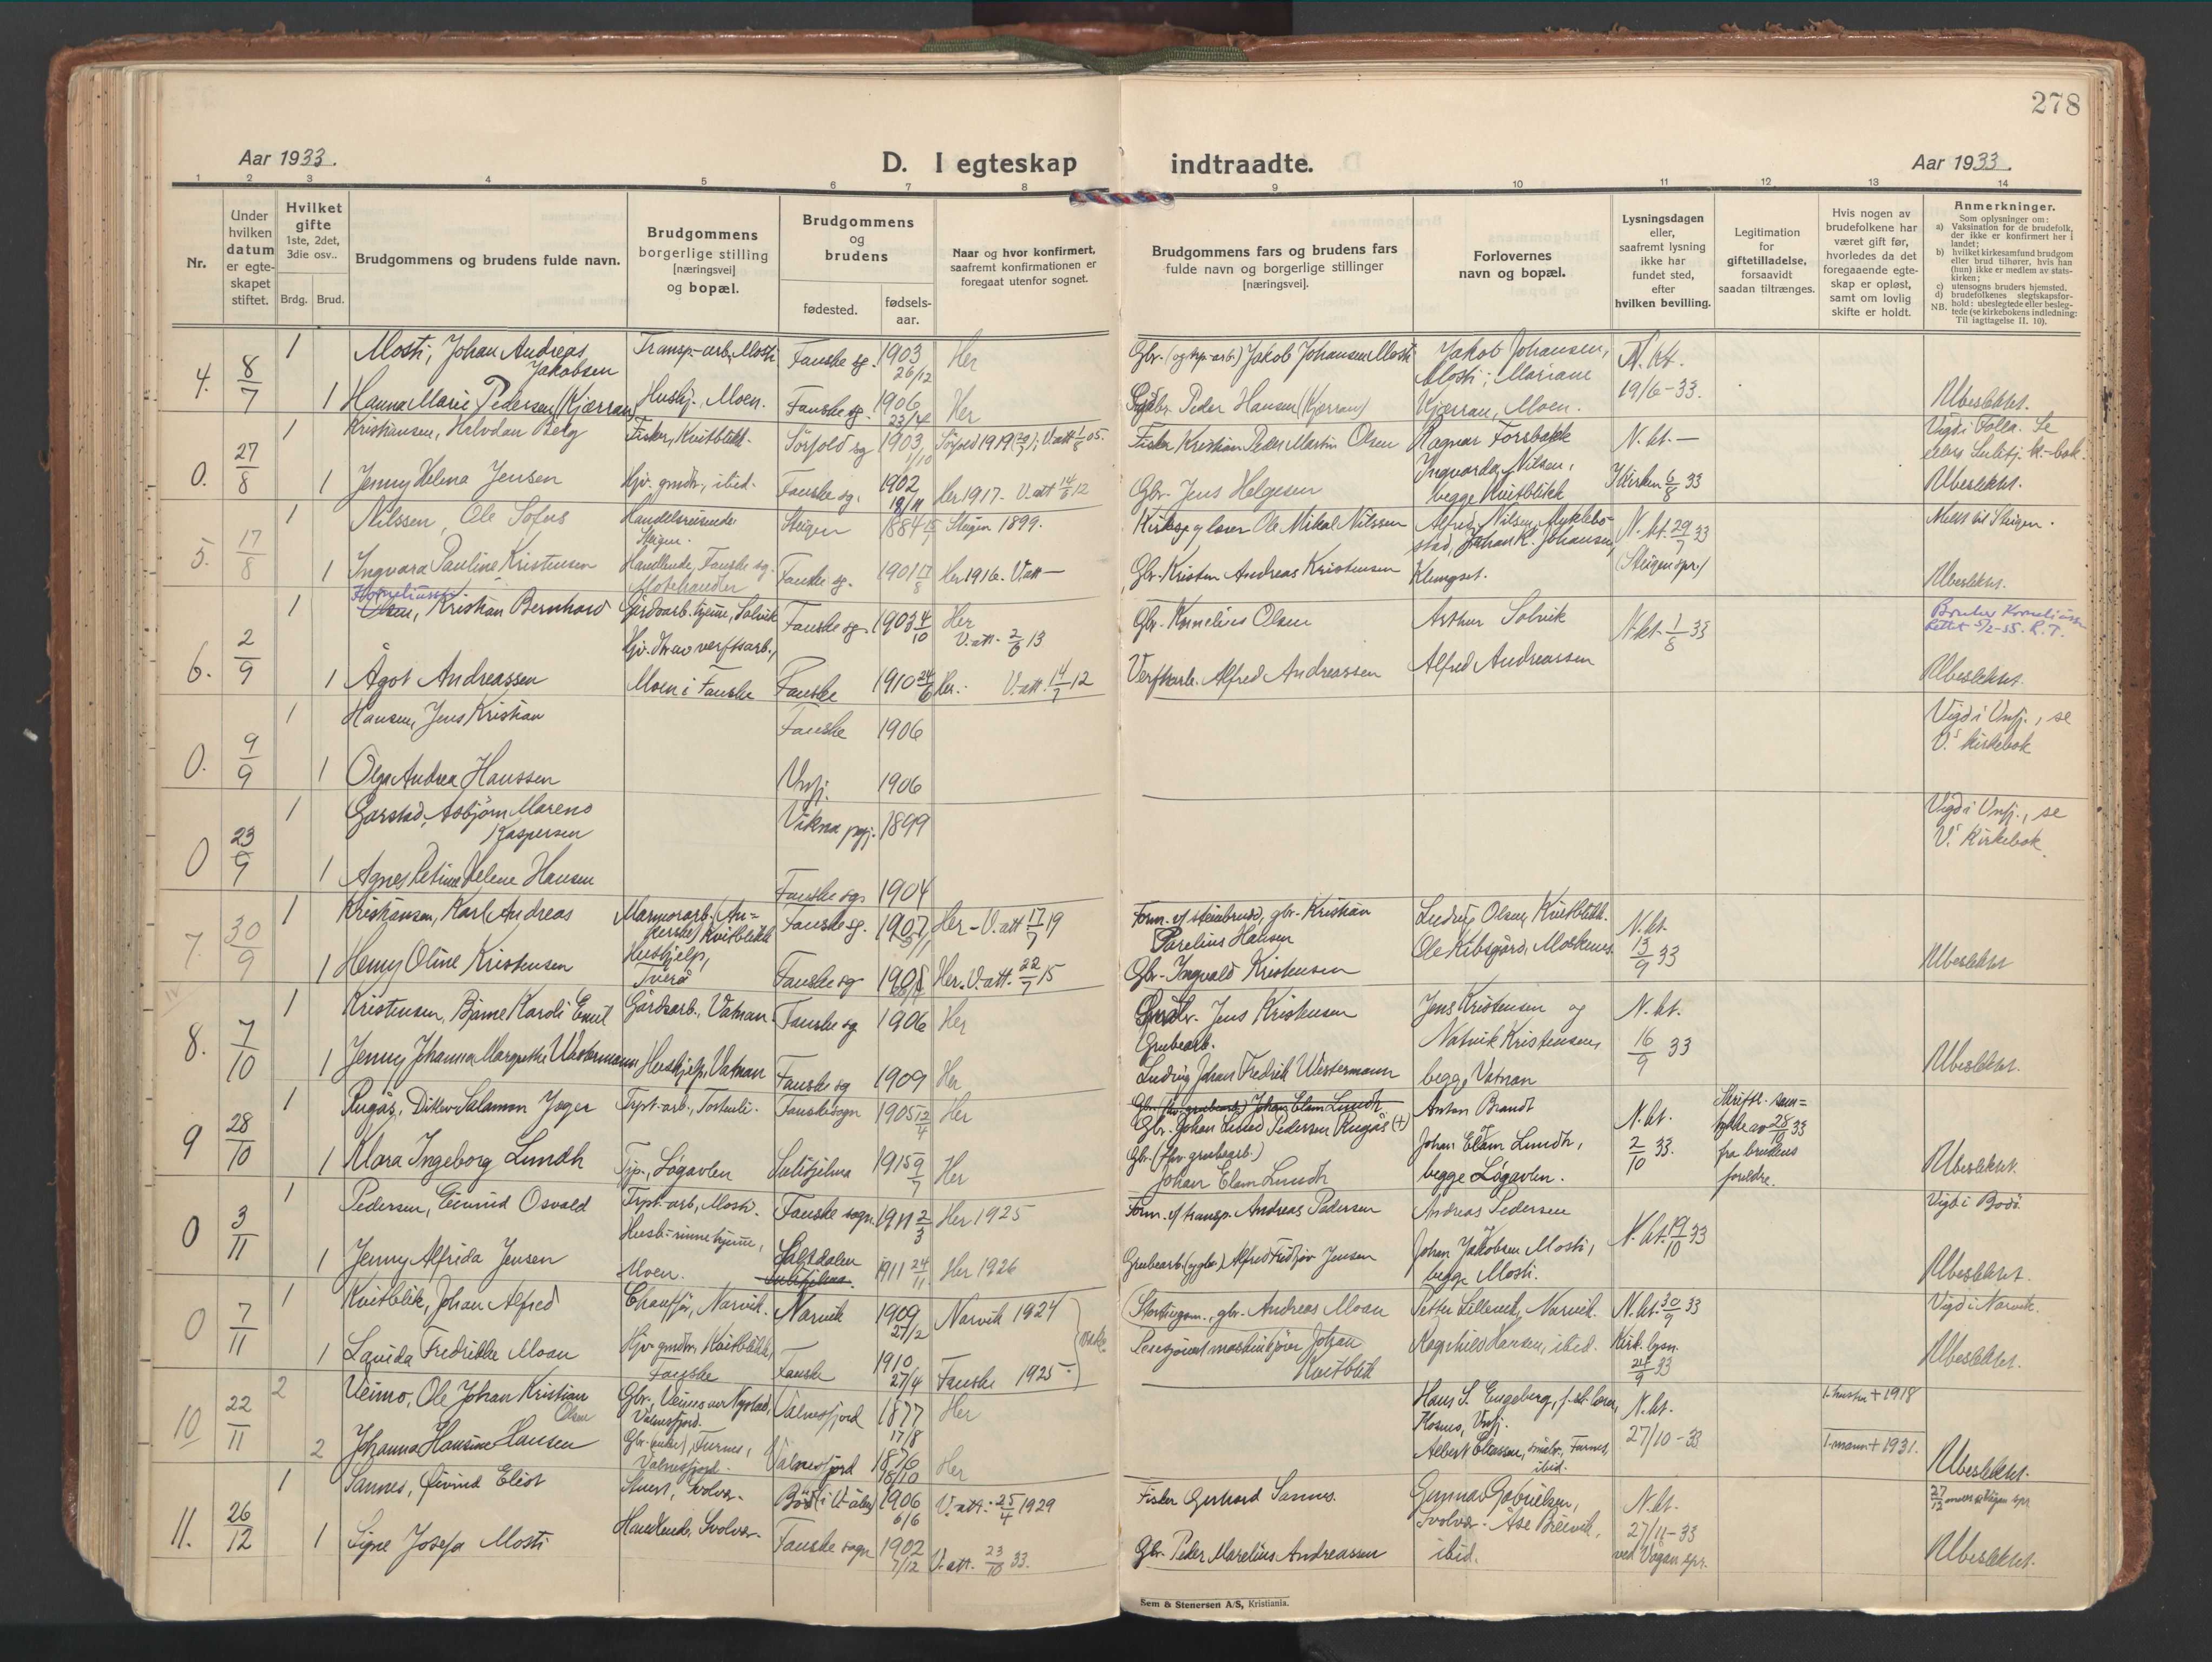 278
Aar 1933.
D. I egteskap indtraadte.
Aar 1933.
1 2 3 4 5 6 7 8 9 10 11 12 13 14
Nr.
Under hvilken datum er egteskapet stiftet.
Hvilket gifte 1ste, 2det, 3die osv..
Brdg. Brud.
Brudgommens og brudens fulde navn.
Brudgommens borgerlige stilling [næringsvei] og bopæl.
Brudgommens og brudens
fødested.
fødsels-aar.
Naar og hvor konfirmert, saafremt konfirmationen er foregaat utenfor sognet.
Brudgommens fars og brudens fars fulde navn og borgerlige stillinger [næringsvei].
Forlovernes navn og bopæl.
Lysningsdagen eller, saafremt lysning ikke har fundet sted, efter hvilken bevilling.
Legitimation for giftetilladelse, forsaavidt saadan tiltrænges.
Hvis nogen av brudefolkene har været gift før, hvorledes da det foregaaende egteskap er opløst, samt om lovlig skifte er holdt.
Anmerkninger.
Som oplysninger om:
a) Vaksination for de brudefolk, der ikke er konfirmert her i landet;
b) hvilket kirkesamfund brudgom eller brud tilhører, hvis han (hun) ikke er medlem av statskirken;
c) utensogns bruders hjemsted.
d) brudefolkenes slegtskapsforhold: ubeslegtede eller beslegtede (se kirkebokens indledning:
NB. Til iagttagelse II. 10).
4. 8/7 1 Mosti, Johan Andreas Jakobsen Transp.-arb., Mosti Fauske sg. 1903 26/12 Her Gbr. (og trp.-arb.) Jakob Johansen Mosti Jakob Johansen, Mosti; Mariane N. kt. 19/6-33.
1 Hanna Marie Pedersen (Kjærran) Hushj., Moen. Fauske sg. 1906 23/4 Her Peder Hansen (Kjærran) Kjærran, Moen. Ubeslektet.
0. 27/8 1 Kristiansen, Halvdan Berg Fisker, Kvitblikk. Sörfold sg 1903 1/10 Sörfold 1919 V. att 1/8 05. Fisker Kristian Peder Martin Olsen Ragnar Forsbakk N. kt. — Vigd i Folla. Se ellers Sulitj. k.-bok.
1 Jenny Helena Jensen Hjv. gmdtr., ibid. Fauske sg. 1902 19/11 Her 1917. V. att 14/6 12 Gbr. Jens Helgesen Ingvarda Nilsen, begge Kvitblikk I kirken 6/8 33 Ubeslektet.
5. 17/8 1 Nilssen, Ole Sofus Handelsreisende Steigen. Steigen 1884 Steigen 1899. Kirkesanger, lærer Ole Mikal Nilssen Alfred Nilsen, Myklebostad, Johan K. Johansen, N. kt. 29/7 33 Meldt til Steigen.
1 Ingvara Pauline Kristensen Handlende, Fauske sg. Motehandler Fauske sg. 1901 17/8 Her 1916. V. att — Gbr. Kristen Andreas Kristensen Klungset. (Steigen spr.) Ubeslektet.
6. 2/9 1 Korneliussen Olsen, Kristian Bernhard Gårdsarb. hjeme, Solvik Fauske sg. 1903 4/10 Her V. att. 2/6 13 Gbr. Kornelius Olsen Arthur Solvik N. kt. 1/8 33 Bruker Korneliussen Rettet 5/2-35. R. T.
1 Ågot Andreassen Hjv. dtr av verftsarb., Moen i Fauske Fauske 1910 24/6 Her. V. att. 14/7 12 Verftsarb. Alfred Andreassen Alfred Andreassen Ubeslektet.
0. 9/9 1 Hansen, Jens Kristian Fauske 1906 Vigd i Vnfj., se V.s kirkebok
1 Olga Andrea Hanssen Vnfj. 1906
0 23/9 1 Garstad, Asbjörn Mareno Kaspersen Vikna pgj. 1899 Vigd i Vnfj., se V.s Kirkebok
1 Agnes Petina Helene Hansen Fauske sg. 1904
7. 30/9 1 Kristiansen, Karl Andreas Marmorarb. (Ankerske) Kvitblikk Fauske sg. 1907 Her - V. att 17/7 19 Form. v/ steinbrudd, gbr. Kristian Parelius Hansen Ludvig Olsen, Kvitblikk. N. kt. 13/9 33
1 Henny Oline Kristensen Hushjelp, Tverå Fauske sg 1908 Her. V. att. 22/7 15 Gbr. Ingvald Kristensen Ole Kibsgård, Moskenes. Ubeslektet
8. 7/10 1 Kristensen, Bjarne Karoli Emil Gårdsarb., Vatnan. Fauske sg 1906 Her Jens Kristensen Jens Kristensen og N. kt. 16/9 33
1 Jenny Johanna Margrethe Westermann Hushjelp, Vatnan Fauske sg 1909 Her Grubearb. Ludvig Johan Fredrik Westermann Natvik Kristensen, begge Vatnan Ubeslektet.
9 28/10 1 Rugås, Ditlev Salamon Jæger Trpt.-arb., Tortenli. Fauske sogn 1905 12/4 Her Gbr. (hv. grubearb.) Johan Elam Lundh Gbr. Johan Lund Pedersen Rugås (+) Anton Brandt og N. kt. 2/10 33. Skriftl. samtykke av 28/10 33 fra brudens foreldre.
1 Klara Ingeborg Lundh Tjp., Lögavlen Sulitjelma 1915 9/7 Her Gbr. (fhv. grubearb.) Johan Elam Lundh Johan Elam Lundh, begge Lögavlen. Ubeslektet.
0 3/11 1 Pedersen, Eivind Osvald Trpt.-arb., Mosti. Fauske sogn. 1911 2/3 Her 1925 Form. v/ transp. Andreas Pedersen Andreas Pedersen og N. kt. 19/10 33 Vigd i Bodö.
1 Jenny Alfrida Jensen Husb.-rinne hjeme, Moen. Saltdalen Sulitjelma. 1911 24/11 Her 1926 Grubearb. (og gbr.) Alfred Fridtjov Jensen Johan Jakobsen Mosti, begge Mosti. Ubeslektet.
0 7/11 1 Kvitblik, Johan Alfred Chauffør, Narvik. Narvik 1909 27/2 Narvik 1924 Stortingsm., gbr. Andreas Moan Petter Lillevik, Narvik. N. kt. 30/9 33 Vigd i Narvik.
1 Lavida Fredrikke Moan Hjv. gmdtr., Kvitblikk, Fauske Fauske 1910 27/4 Fauske 1925 Johan Kvitblik Ragnhild Hansen, ibid. Kirk. lysn. 24/9 33 Ubeslektet.
10 22/11 2 Veimo, Ole Johan Kristian Olsen Gbr., Valnesfjord. Valnesfjord 1877 17/8 Her Hans S. Engeberg, Kosmo, Vnfj. N. kt. 27/10-33 1. hustru + 1918
2 Johanna Hansine Hansen Gbr. (enke), Furnes, Valnesfjord. Valnesfjord 1876 18/10 Her Albert Eliassen, småbr., Furnes, ibid. 1. mann + 1931. Ubeslektet.
11. 26/12 1 Sannes, Øivind Eliot Stuert, Svolvær. Bödö (i V-ålen) 1906 6/6 V. att. 25/4 1929 Fisker Gerhard Sannes. Gunnar Gabrielsen, Svolvær. Åse Breivik, N. kt. 27/11-33
1 Signe Josefa Mosti Handlende, Svolvær. Fauske sogn 1902 7/12 V. att. 23/10 33. Gbr. Peder Marelius Andreassen ibid. ved Vågan spr. Ubeslektet.
Sem & Stenersen A/S, Kristiania.